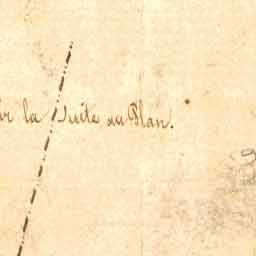 la Suite au Plan.